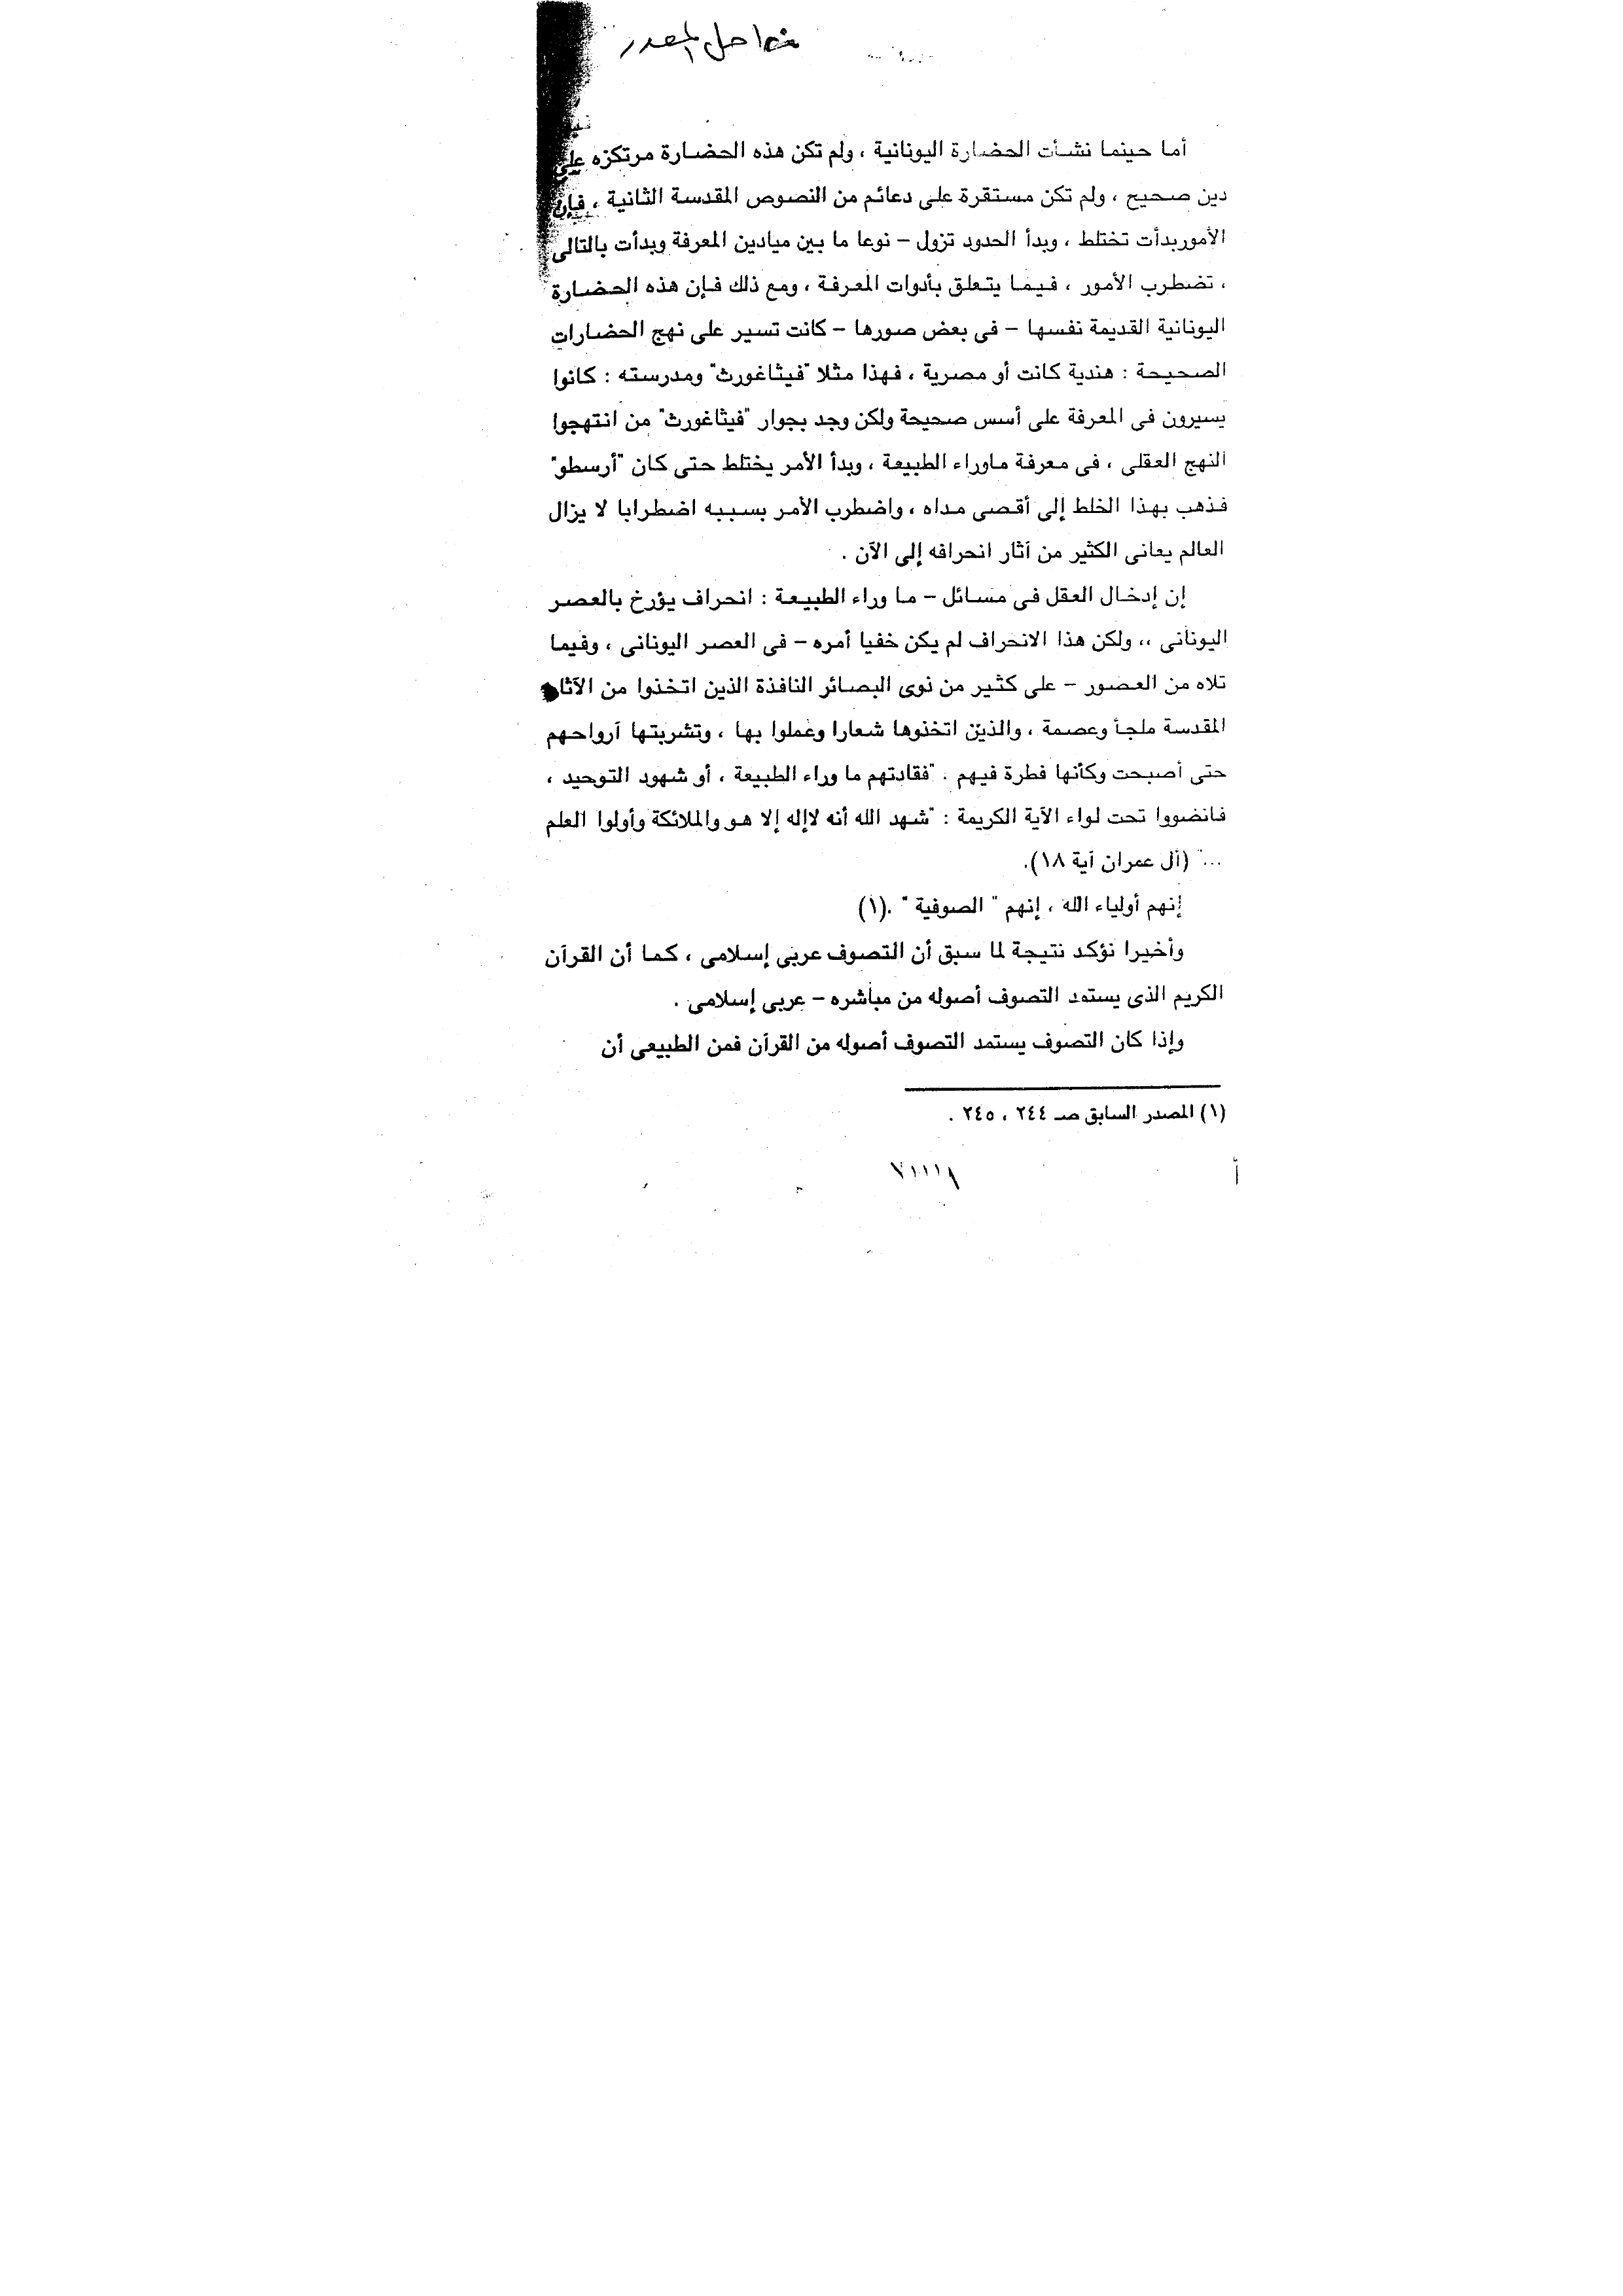 أما حينما نشأت الحضارة اليونانية ، ولم تكن هذه الحضارة مرتكزه على
دين صحيح ، ولم تكن مستقرة على دعائم من النصوص المقدسة الثانية ، فإن
الأموربدأت تختلط ، وبدأ الحدود تزول – نوعا ما بين ميادين المعرفة وبدأت بالتالى
، تضطرب الأمور ، فيما يتعلق بأدوات المعرفة ، ومع ذلك فإن هذه الحضارة
اليونانية القديمة نفسها – فى بعض صورها – كانت تسير على نهج الحضارات
الصحيحة : هندية كانت أو مصرية ، فهذا مثلا "فيثاغورث" ومدرسته : كانوا
يسيرون فى المعرفة على أسس صحيحة ولكن وجد بجوار "فيثاغورث" من انتهجوا
النهج العقلى ، فى معرفة ماوراء الطبيعة ، وبدأ الأمر يختلط حتى كان "أرسطو"
فذهب بهذا الخلط إلى أقصى مداه ، واضطرب الأمر بسببه اضطرابا لا يزال
العالم يعانى الكثير من آثار انحرافه إلى الآن .
إن إدخال العقل فى مسائل – ما وراء الطبيعة : انحراف يؤرخ بالعصر
اليونانى ،، ولكن هذا الانحراف لم يكن خفيا أمره – فى العصر اليونانى ، وفيما
تلاه من العصور – على كثير من نوى البصائر النافذة الذين اتخذوا من الآثا
المقدسة ملجأ وعصمة ، والذين اتخذوها شعارا وعملوا بها ، وتشربتها آرواحهم
حتى أصبحت وكأنها فطرة فيهم . "فقادتهم ما وراء الطبيعة ، أو شهود التوحيد ،
فانضووا تحت لواء الآية الكريمة : "شهد الله أنه لاإله إلا هو والملائكة وأولوا العلم
..." (آل عمران آية ١٨).
إنهم أولياء الله ، إنهم " الصوفية " .(١)
وأخيرا نؤكد نتيجة لما سبق أن التصوف عربى إسلامى ، كما أن القرآن
الكريم الذى يستمد التصوف أصوله من مباشره – عربى إسلامى .
وإذا كان التصوف يستمد التصوف أصوله من القرآن فمن الطبيعى أن
(١) المصدر السابق صـ ٢٤٤ ، ٢٤٥ .